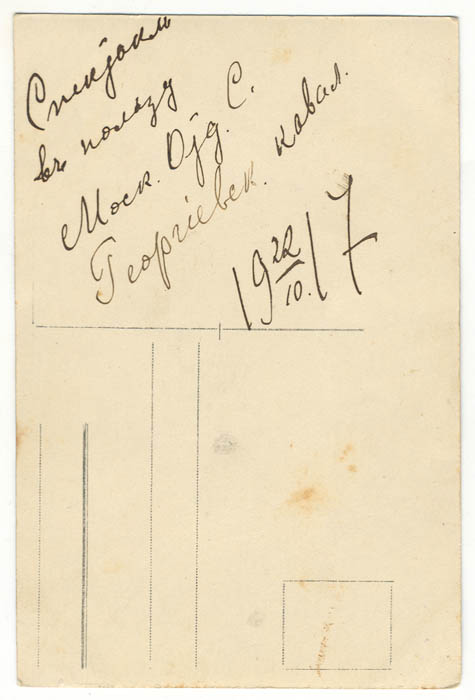 Спектакль
въ пользу
Моск. Отд. С.
Георгіевск. кавал.
19 22/10. 17